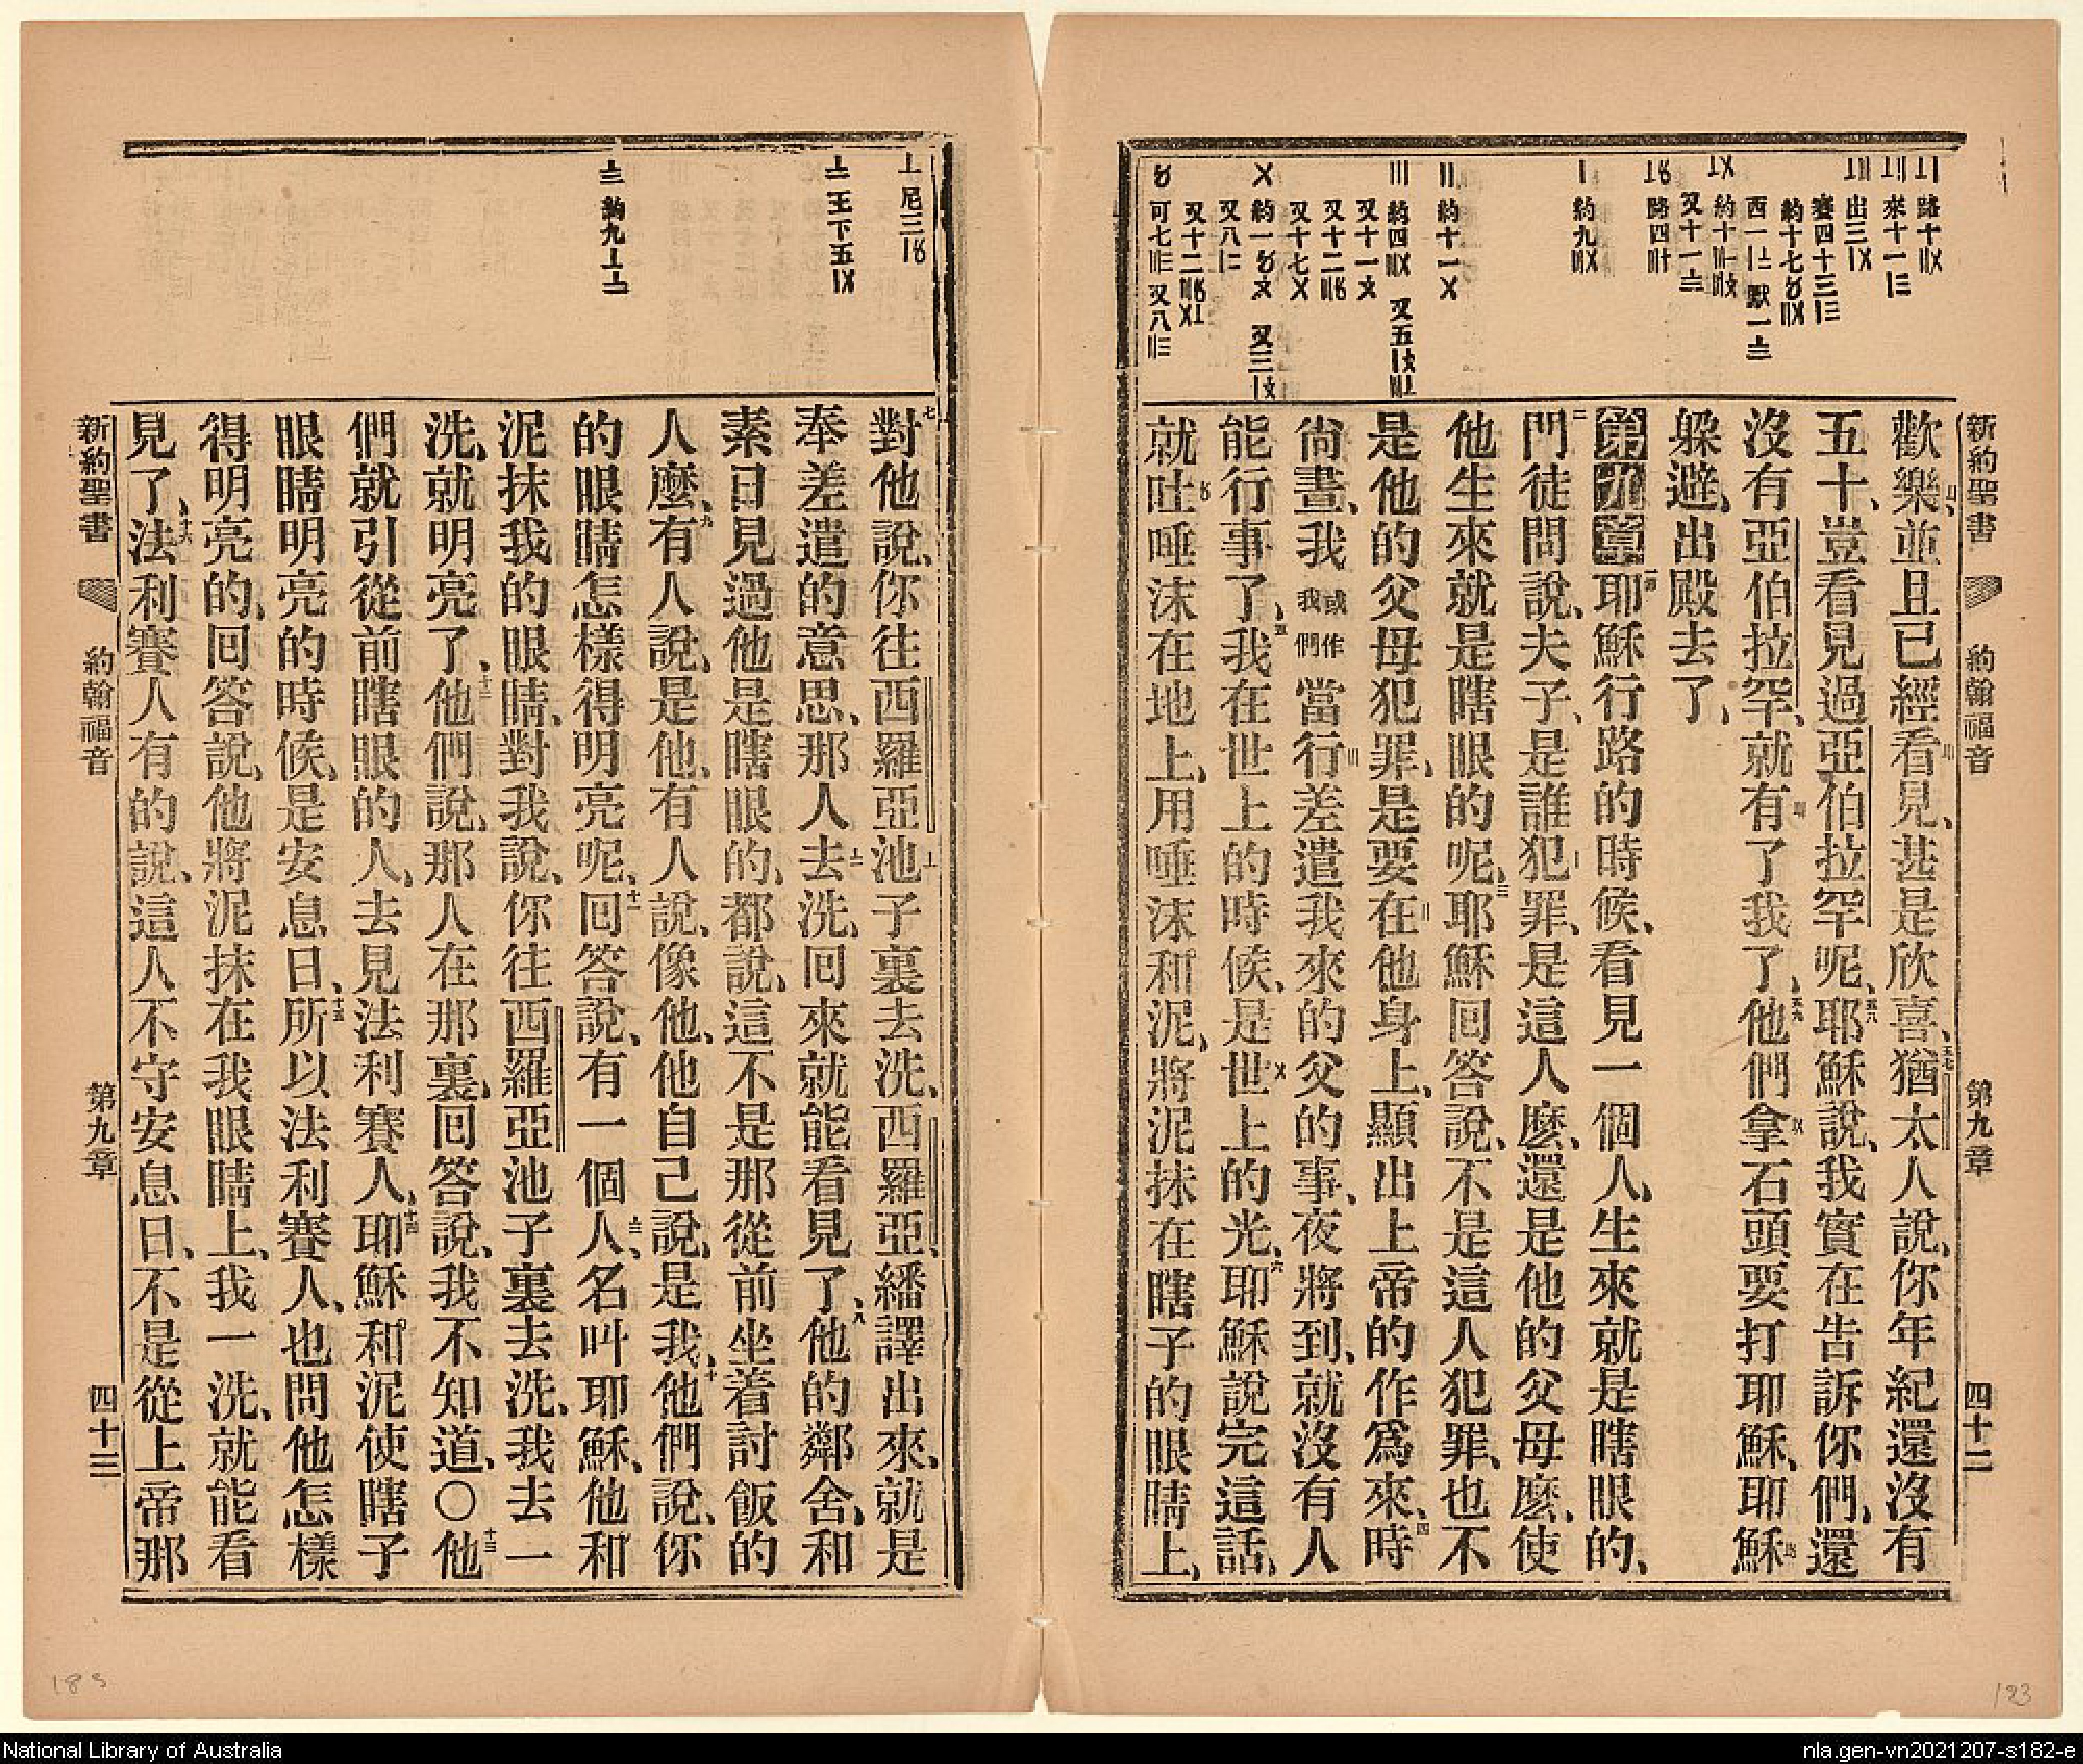 新約聖書
約翰福音
第九章
四十二
路十
來十一
出三
賽四十三
約十七
西一
默一
約十
又十一
路四
約九
約十一
約四
又五
又十一
又十二
又十七
約一
又三
又八
又十二
可七
又八
歡樂、並且已經看見、甚是欣喜、五七猶太人說、你年紀還沒有
五十、豈看見過亞伯拉罕呢、五八耶穌說、我實在告訴你們、還
沒有亞伯拉罕、就有了我了、五九他們拿石頭要打耶穌、耶穌
躲避、出殿去了、
第九章一節耶穌行路的時候、看見一個人、生來就是瞎眼的、
二門徒問說、夫子、是誰犯罪、是這人麼、還是他的父母麼、使
他生來就是瞎眼的呢、三耶穌回答說、不是這人犯罪、也不
是他的父母犯罪、是要在他身上、顯出上帝的作爲來、四時
尚晝、我或作我們當行差遣我來的父的事、夜將到、就沒有人
能行事了、五我在世上的時候、是世上的光、六耶穌說完這話、
就吐唾沫在地上、用唾沫和泥、將泥抹在瞎子的眼睛上、
尼三
王下五
約九
七對他說、你往西羅亞池子裏去洗、西羅亞、繙譯出來、就是
奉差遣的意思、那人去洗、回來就能看見了、八他的鄰舍、和
素日見過他是瞎眼的、都說、這不是那從前坐着討飯的
人麼、九有人說、是他、有人說、像他、他自己說、是我、十他們說、你
的眼睛怎樣得明亮呢、十一回答說、有一個人、名叫耶穌、他和
泥抹我的眼睛、對我說、你往西羅亞池子裏去洗、我去一
洗、就明亮了、十二他們說、那人在那裏、回答說、我不知道、〇十三他
們就引從前瞎眼的人、去見法利賽人、十四耶穌和泥使瞎子
眼睛明亮的時候、是安息日、十五所以法利賽人、也問他怎樣
得明亮的、回答說、他將泥抹在我眼睛上、我一洗、就能看
見了、十六法利賽人有的說、這人不守安息日、不是從上帝那
新約聖書
約翰福音
第九章
四十三
183
183
National Library of Australia
nla.gen-vn2021207-s182-e